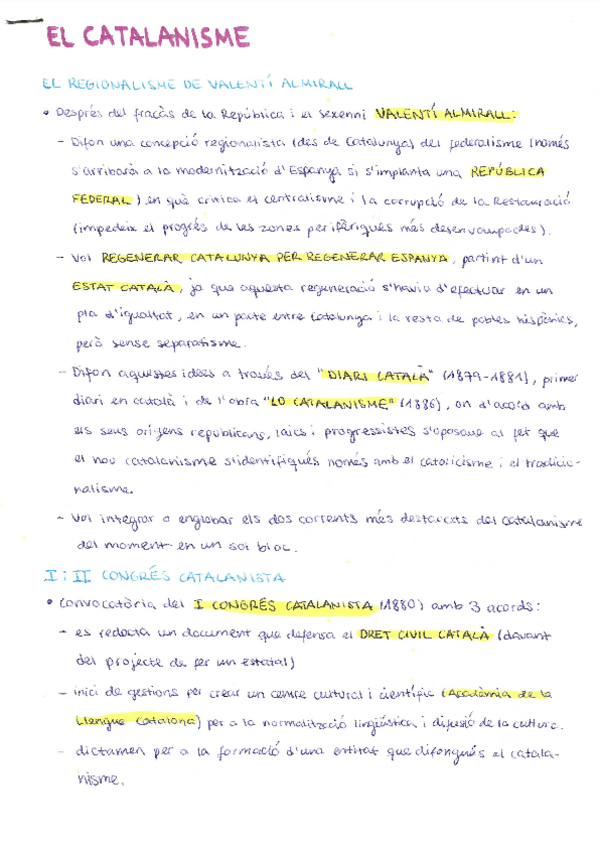 EL CATALANISME
EL REGIONALISME DE VALENTÍ ALMIRALL
• Després del fracàs de la República i el Sexenni VALENTÍ ALMIRALL:
- Difon una concepció regionalista (des de Catalunya) del federalisme (només
s'arribarà a la modernització d'Espanya si s'implanta una REPÚBLICA
FEDERAL) en què critica el centralisme i la corrupció de la Restauració
(impedeix el progrés de les zones perifèriques més desenvolupades).
- Vol REGENERAR CATALUNYA PER REGENERAR ESPANYA, partint d'un
ESTAT CATALÀ, ja que aquesta regeneració s'havia d'efectuar en un
pla d'igualtat, en un pacte entre Catalunya i la resta de pobles hispànics,
però sense separatisme.
- Difon aquestes idees a través del "DIARI CATALÀ" (1879-1881), primer
diari en català i de l'obra "LO CATALANISME" (1886), on d'acord amb
els seus orígens republicans, laics i progressistes s'oposava al fet que
el nou catalanisme s'identifiqués només amb el catolicisme i el tradicio-
nalisme.
- Vol integrar o englobar els dos corrents més destacats del catalanisme
del moment en un sol bloc.
I i II CONGRÉS CATALANISTA
• Convocatòria del I CONGRÉS CATALANISTA (1880) amb 3 acords:
- es redacta un document que defensa el DRET CIVIL CATALÀ (davant
del projecte de fer un estatal)
- inici de gestions per crear un centre cultural i científic (Acadèmia de la
Llengua Catalana) per a la normalització lingüística i difusió de la cultura.
- dictamen per a la formació d'una entitat que difongués el catala-
nisme.